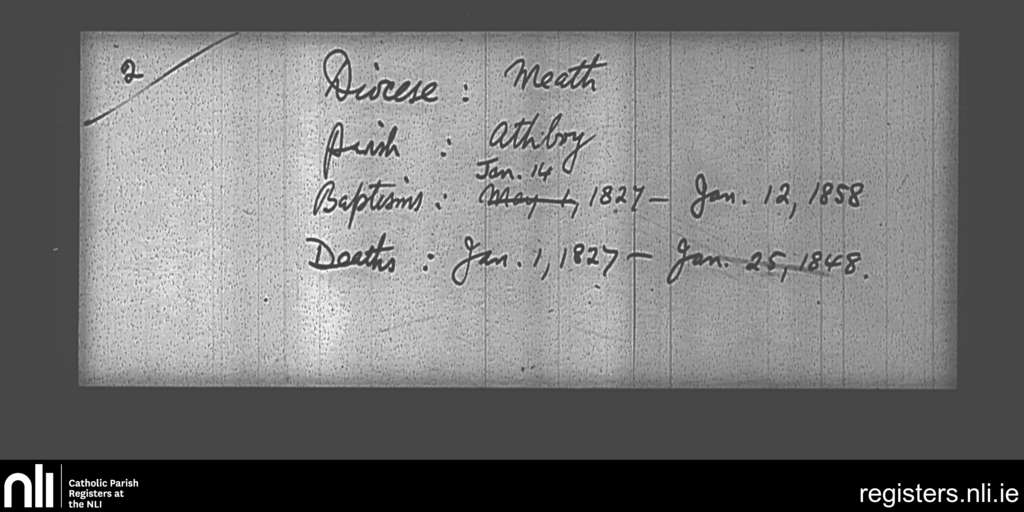 2
Diocese : Meath
Parish : Athboy
Jan. 14
Baptisms : May 1, 1827 — Jan. 12, 1858
Deaths : Jan. 1, 1827 — Jan. 25, 1848.
nli
Catholic Parish
Registers at
the NLI
registers.nli.ie